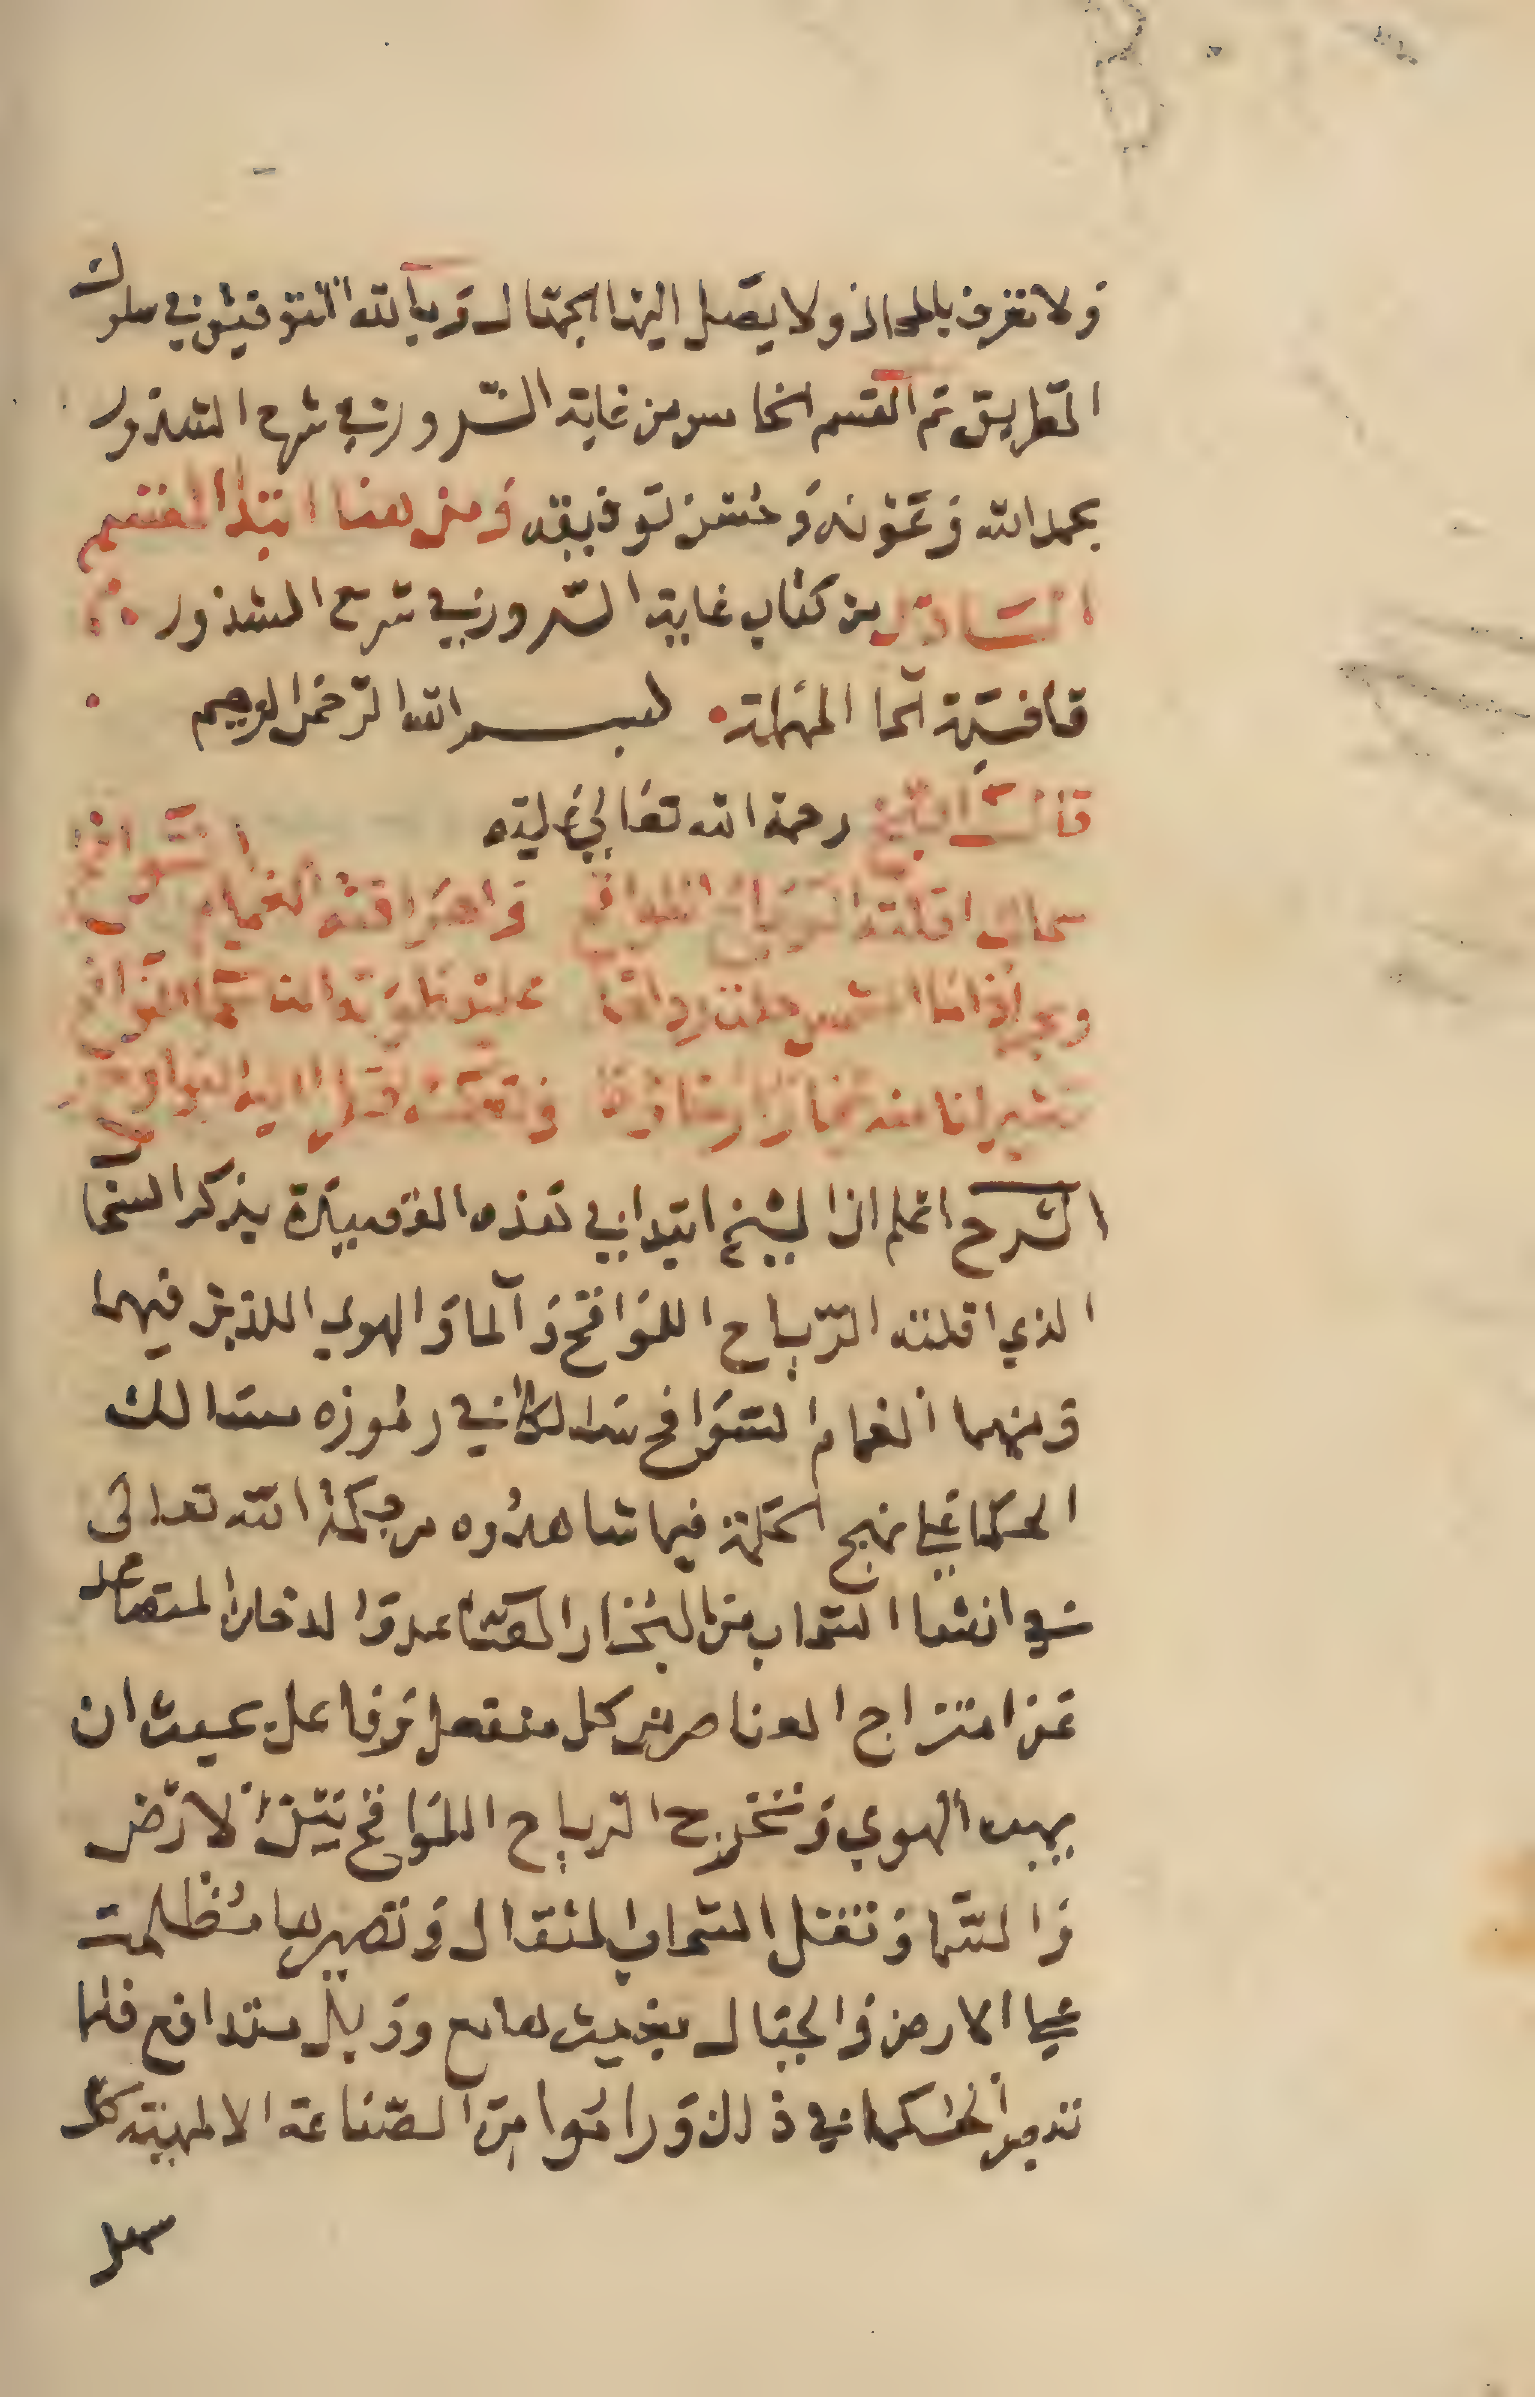 ولا تعرف بالمحال ولا يصل اليها الجهال وبالله التوفيق في سلوك
الطريق تم القسم الخامس من غاية السرور في شرح الشذور
بحمد الله وعونه وحسن توفيقه ومن هنا ابتدا القسم
السادس من كتاب غاية السرور في شرح الشذور
قافية الحا المهملة بسم الله الرحمن الرحيم
قال الشيخ رحمة الله تعالى عليه
سحاب اقلته الرياح اللواقح واهراقته الغمام السوافح
الشمس عليه
لنا منه بخارا
الشرح اعلم ان الشيخ ابتدا في هذه القصيدة بذكر السحاب
الذي اقلته الرياح اللواقح والما والهوي اللذين فيهما
ومنهما الغمام السوافح سالكا في رموزه مسالك
الحكما علي نهج الحكمة فيما شاهدوه من حكمة الله تعالى
في انشا السحاب من البخار الصاعد والدخان المتصاعد
عن امتزاج العناصر من كل منفعل وفاعل بحيث ان
يهب الهوي وتخرج الرياح اللواقح بين الارض
والسما وتقل السحاب الثقال وتصير بها مظلمة
علي الارض والجبال بغيث هامع ووبل متدافع فلما
تدبر الحكما في ذلك وراموا من الصناعة الالهية كل